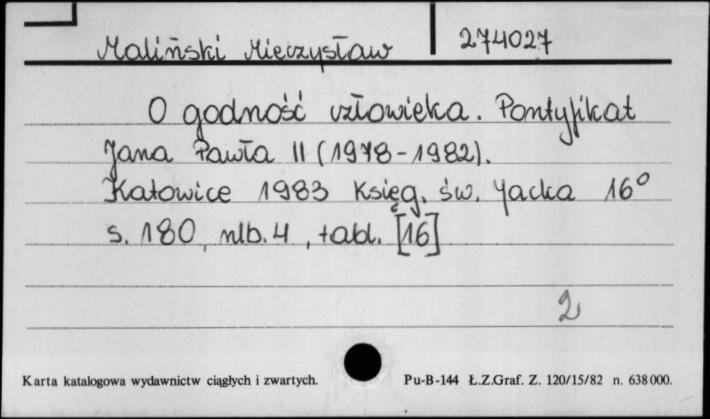 Maliński Mieczysław 274027
O godność człowieka. Pontyfikat
Jana Pawła II (1978-1982).
Katowice 1983 Księg. św. Jacka 16°
s. 180, nlb. 4, tabl. [16]
2
Karta katalogowa wydawnictw ciągłych i zwartych. Pu-B-144 Ł.Z.Graf. Z. 120/15/82 n. 638000.